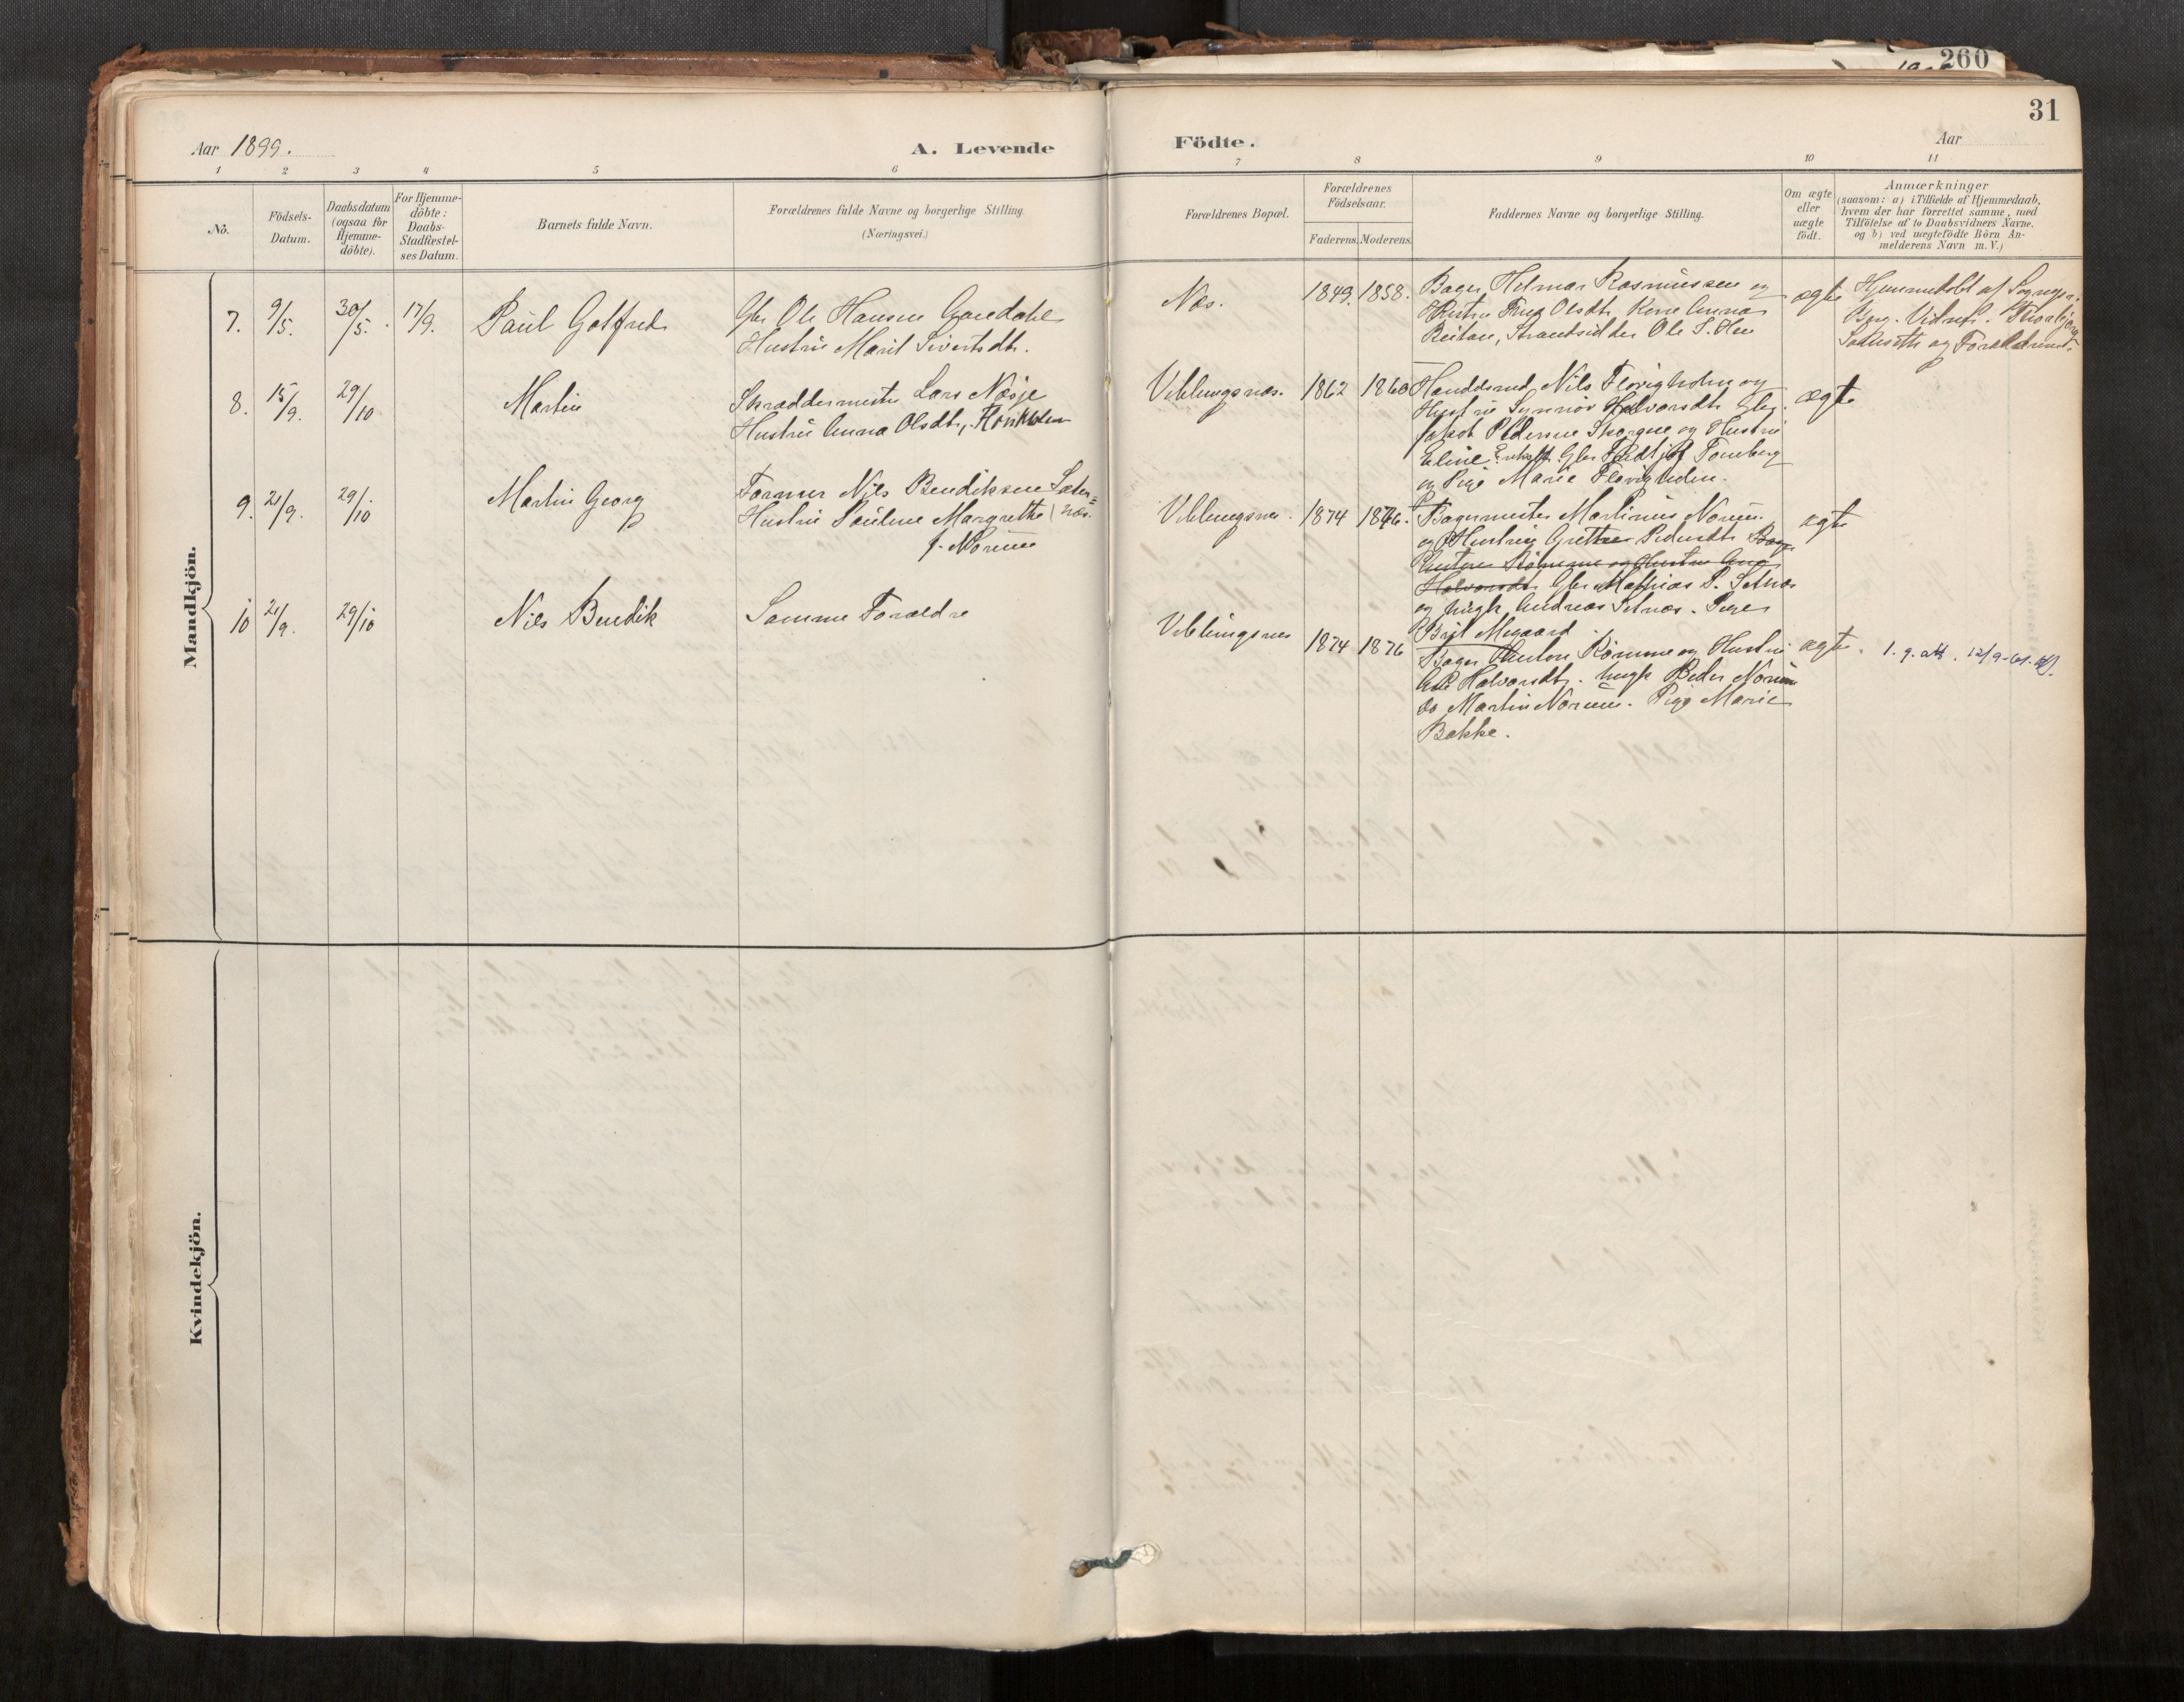 260
31
Aar 1899.
A. Levende Födte.
Aar
1 2 3 4 5 6 7 8 9 10 11
No.
Födsels-Datum.
Daabsdatum (ogsaa for Hjemme-döbte).
For Hjemme-döbte: Daabs-Stadfæstel-ses Datum.
Barnets fulde Navn.
Forældrenes fulde Navne og borgerlige Stilling.
(Næringsvei.)
Forældrenes Bopæl.
Forældrenes Födselsaar.
Faderens. Moderens.
Faddernes Navne og borgerlige Stilling.
Om ægte eller uægte födt.
Anmærkninger
(saasom: a) i Tilfælde af Hjemmedaab,
hvem der har forrettet samme, med
Tilföielse af to Daabsvidners Navne,
og b) ved uægtefödte Börn An-
melderens Navn m. V.)
Mandkjön.
7. 9/5. 30/5. 17/9.
Paul Gotfred
Gbr Ole Hansen
Hustru Marit Sivertsdtr.
Næs.
1849. 1858.
Bager Helmar Rasmussen og
Hustru Olsdtr. Anna
Reitan, Strandsidder Ole S. Hen
ægte
Hjemmedöbt af
Vidner.
og Forældrene.
8. 15/9. 29/10
Martin
Skræddermester Lars Næsje
Hustru Anna Olsdtr,
Veblungsnæs.
1862 1860
Nils og
Hustru Synnöv Halvorsdtr Gbr.
Jakob Pedersen og Hustru
Eline Gbr
og Pige Marie
ægte
9. 21/9. 29/10
Martin Georg
Former Nils Bendiksen Sæter=
Hustru Pauline Margrethe næs.
f. Norum
Veblungsnes.
1874 1876.
Bagermester Martinus Norum
og Hustru Grethe Pedersdtr Bager
Anton Römme og Hustru Ane
Halvorsdtr Gbr Mathias P. Setnæs
og Ungk. Andreas Setnæs. Pige
Brit Megaard
ægte
10 21/9. 29/10
Nils Bendik
Samme Forældre
Veblungsnes
1874 1876
Bager Anton Römme og Hustru
Ane Halvorsdtr. Ungk Peder Norum
do Martin Norum. Pige Marie
Bakke.
ægte.
1. g. att. 12/9-61.
Kvindekjön.